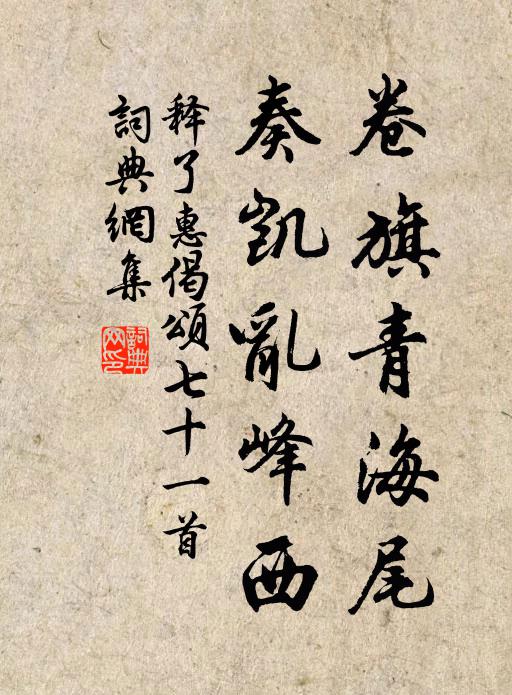 卷旗青海尾
奏凯亂峰西
释了惠偈頌七十一首
詞典網集
詞典网印